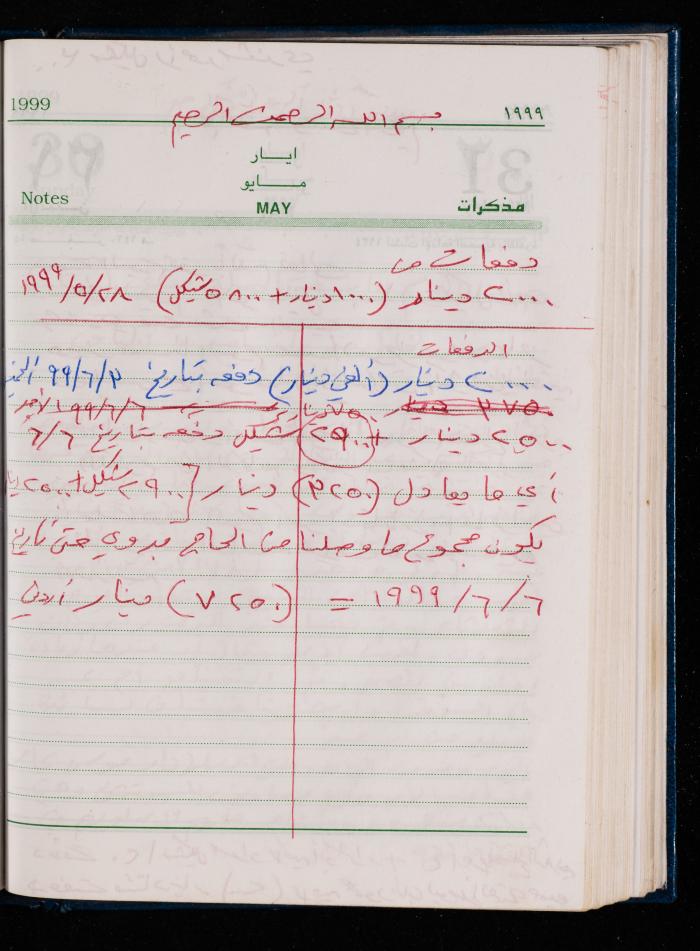 1999 بسم الله الرحمن الرحيم ١٩٩٩
ايـــار
مـــايو
Notes MAY مذكرات
دفعات من
٢٠٠٠ دينار (١٠٠٠ دينار + ٥٨٠٠ شيكل) ٢٨/٥/١٩٩٩
الدفعات
٢٠٠٠ دينار (ألفي دينار) دفعه بتاريخ ٣/٦/٩٩
٢٥٠٠ دينار + (٢٩٠٠) شيكل دفعه بتاريخ ٦/٦
أي ما يعادل (٣٢٥٠) دينار [٢٩٠٠ شيكل + ٢٥٠٠
يكون مجموع ما وصلنا من الحاج بدوي حتى تاريخ
٦/٦/١٩٩٩ = (٧٢٥٠) دينار أردني